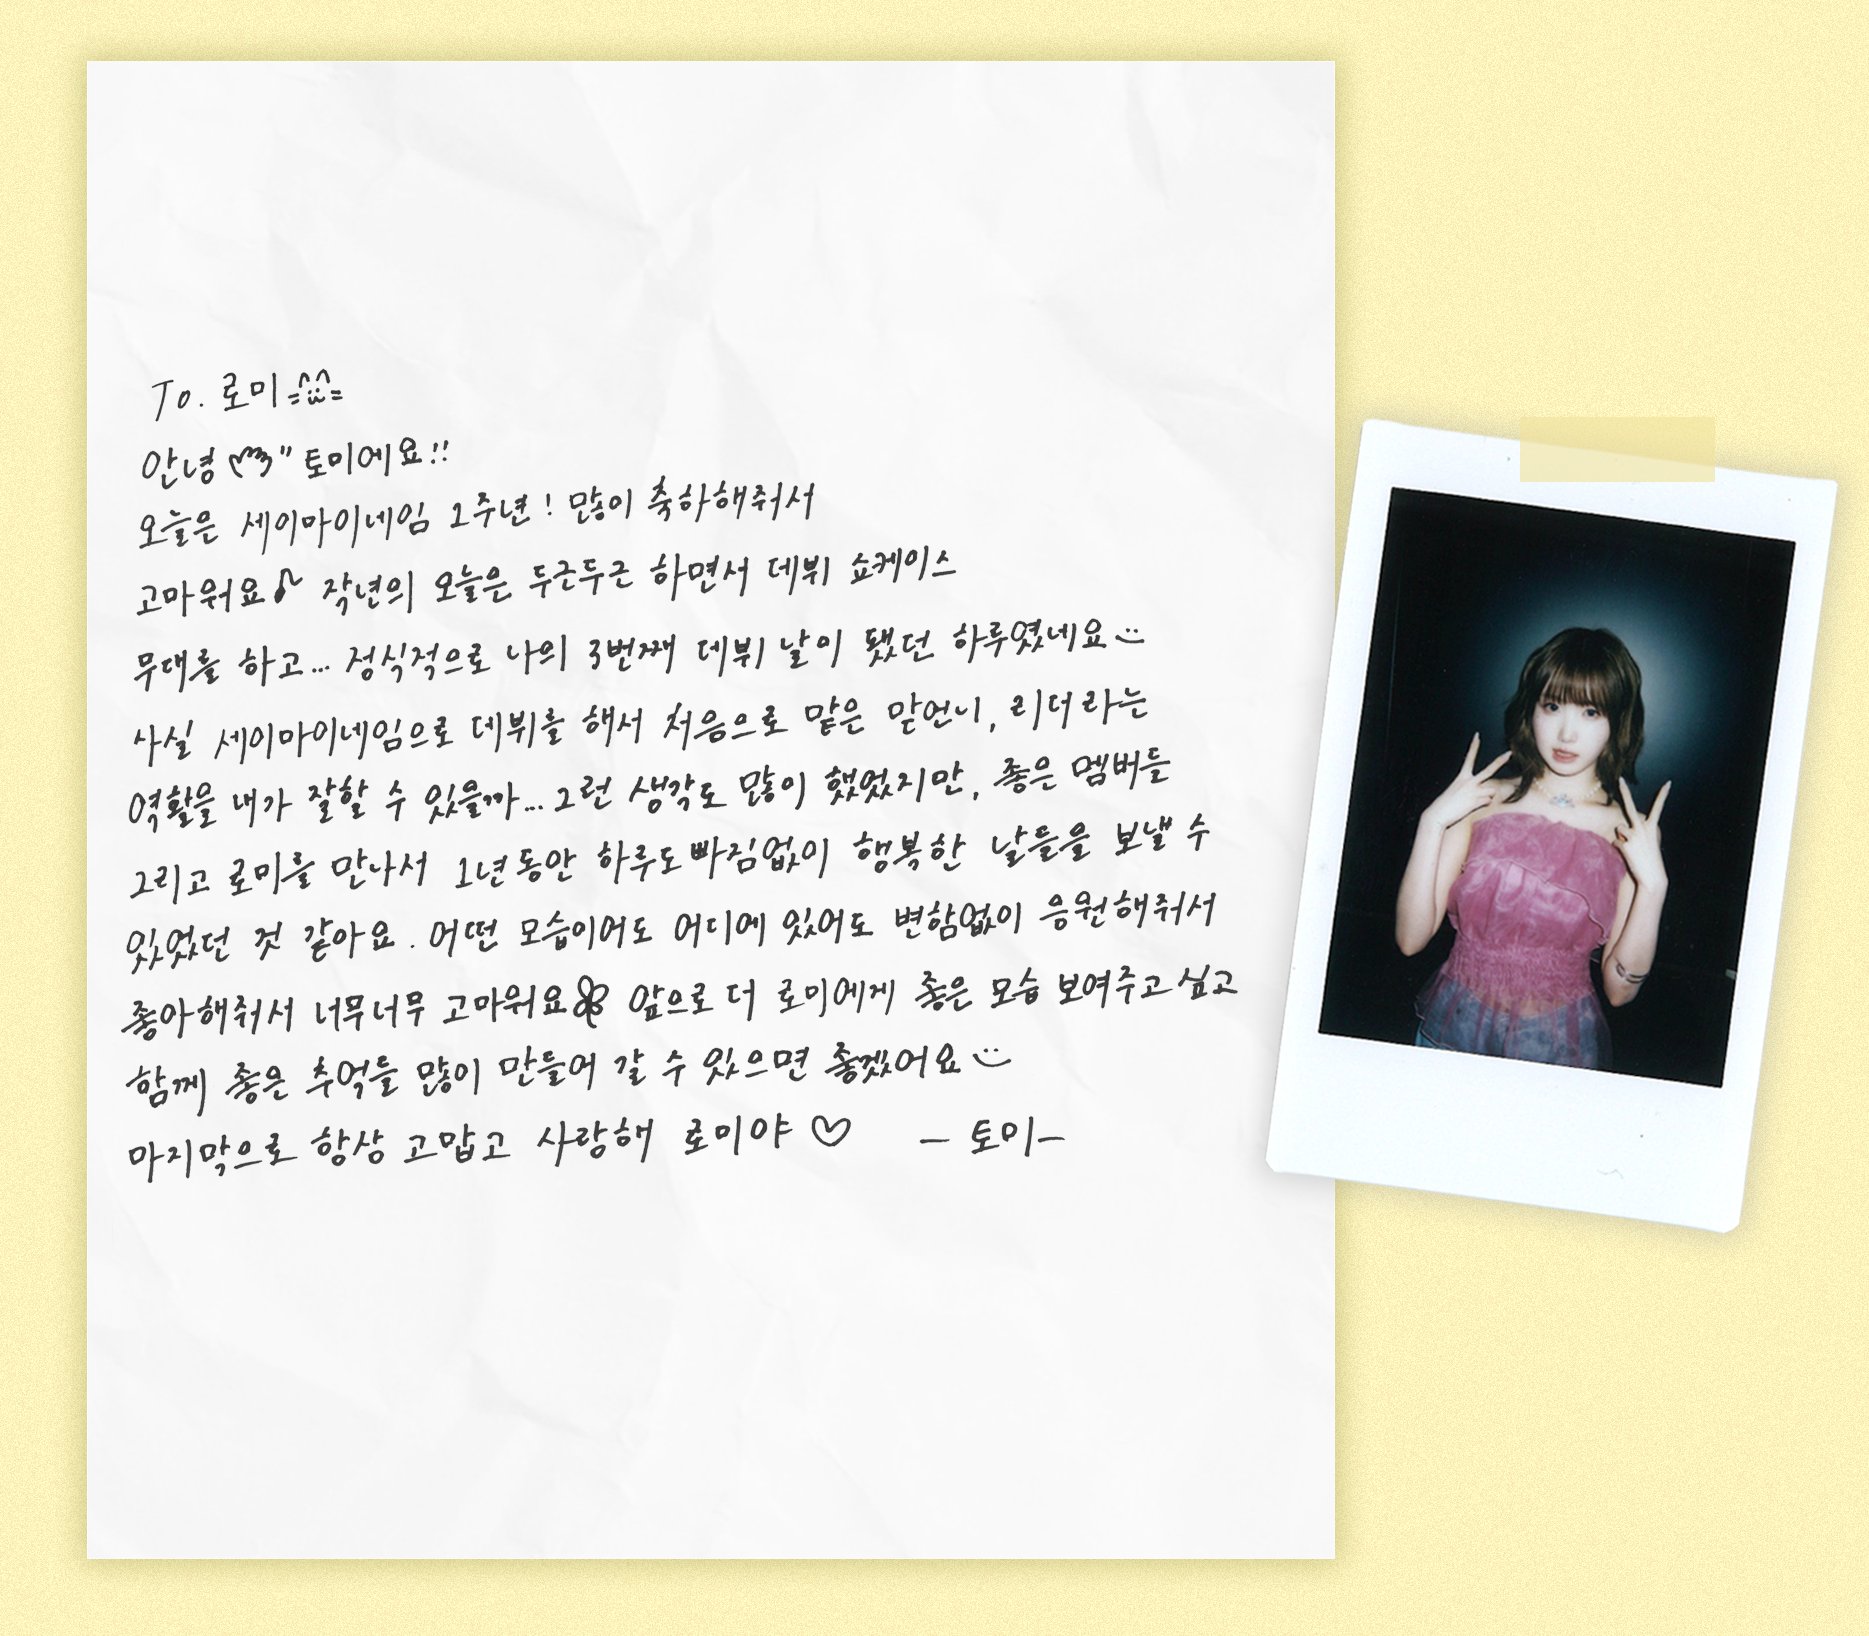 To. 로미
안녕 토미에요!!
오늘은 세이마이네임 1주년! 많이 축하해줘서
고마워요♪ 작년의 오늘은 두근두근 하면서 데뷔 쇼케이스
무대를 하고... 정식적으로 나의 3번째 데뷔 날이 됐던 하루였네요
사실 세이마이네임으로 데뷔를 해서 처음으로 맡은 맏언니, 리더라는
역활을 내가 잘할 수 있을까... 그런 생각도 많이 했었지만, 좋은 멤버들
그리고 로미를 만나서 1년동안 하루도 빠짐없이 행복한 날들을 보낼 수
있었던 것 같아요. 어떤 모습이어도 어디에 있어도 변함없이 응원해줘서
좋아해줘서 너무너무 고마워요 앞으로 더 로미에게 좋은 모습 보여주고싶고
함께 좋은 추억들 많이 만들어 갈 수 있으면 좋겠어요
마지막으로 항상 고맙고 사랑해 로미야♡ - 토미-